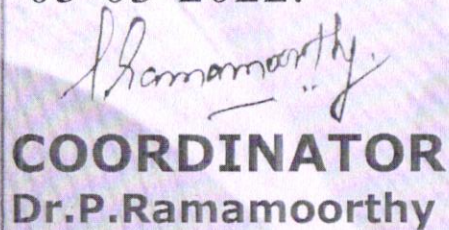 P Ramamoorthy.
COORDINATOR
Dr.P.Ramamoorthy